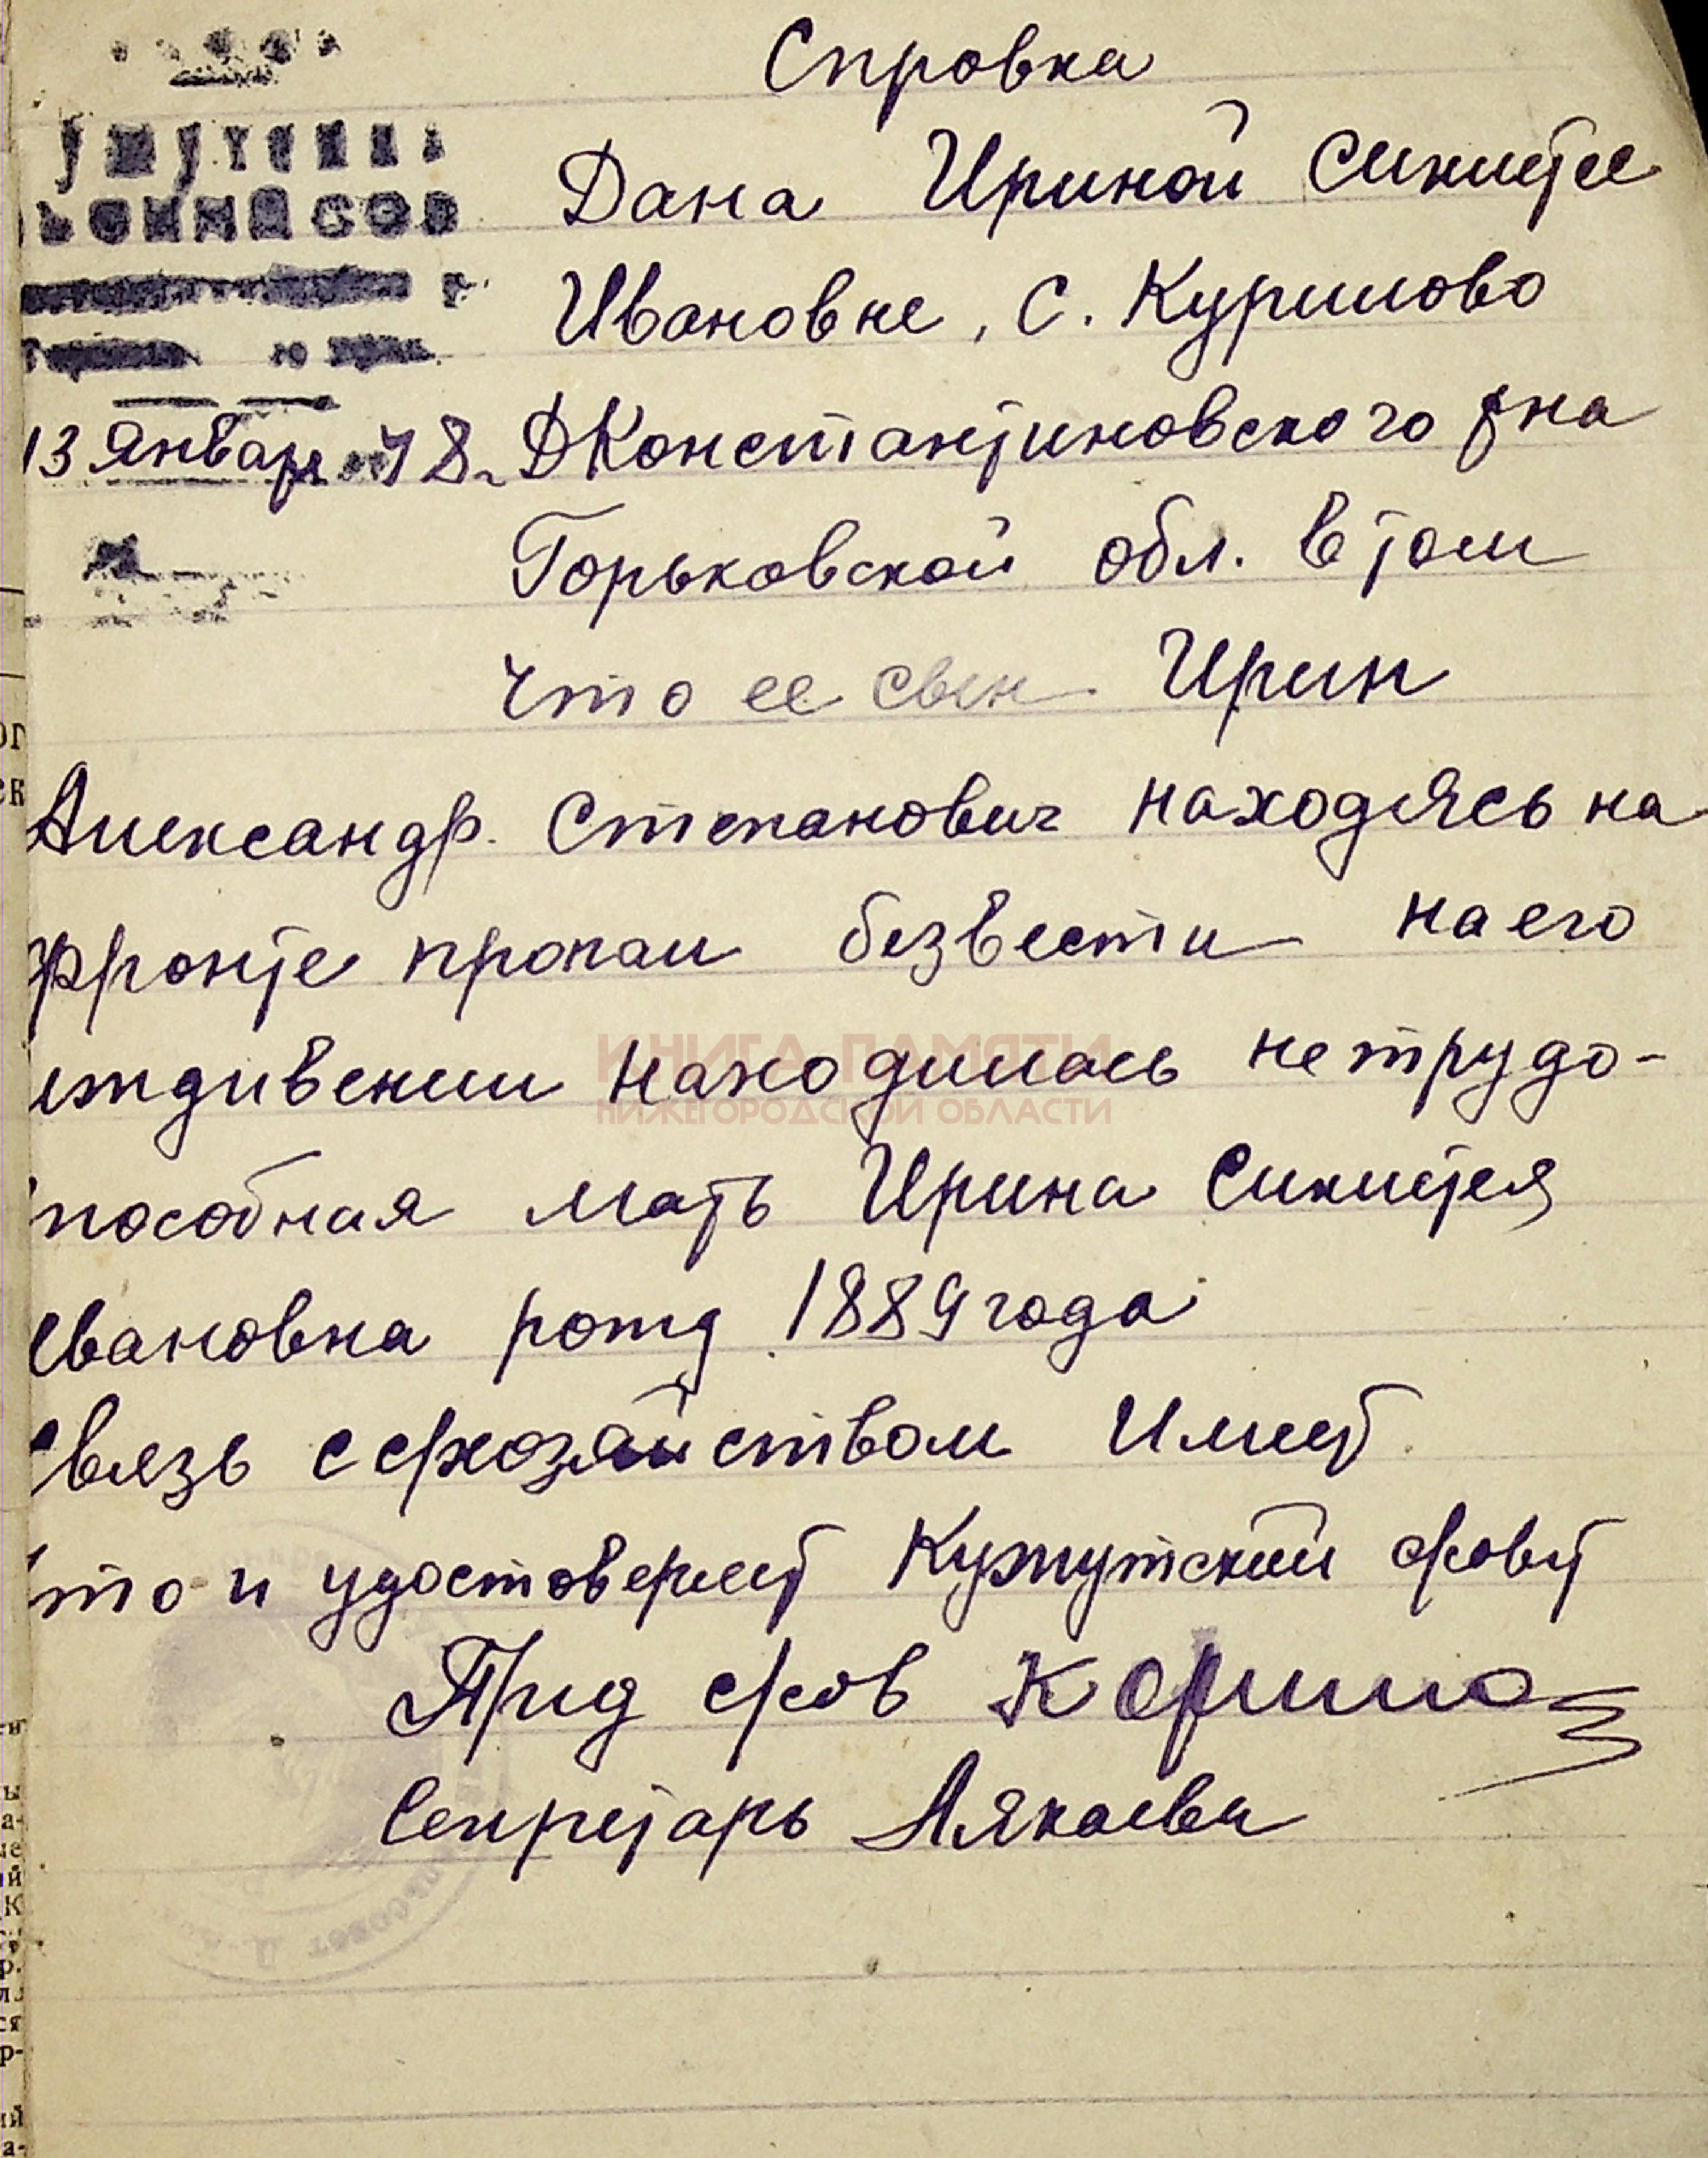 Справка
Дана Ириной Синитее
Ивановне, с. Курилово
13 январ 48г. ДКонстантиновского рна
Горьковской обл. в том
что ее свен Ирин
Александр Степанович находясь на
фронте пропал безвести на его
иждивении находилась нетрудо-
способная мать Ирина Синитея
Ивановна рожд 1889 года
связь с с/хозяйством имеет
что и удостоверяет Кужутский с/совет
Пред с/сов
Секретарь
КНИГА ПАМЯТИ
НИЖЕГОРОДСКОЙ ОБЛАСТИ